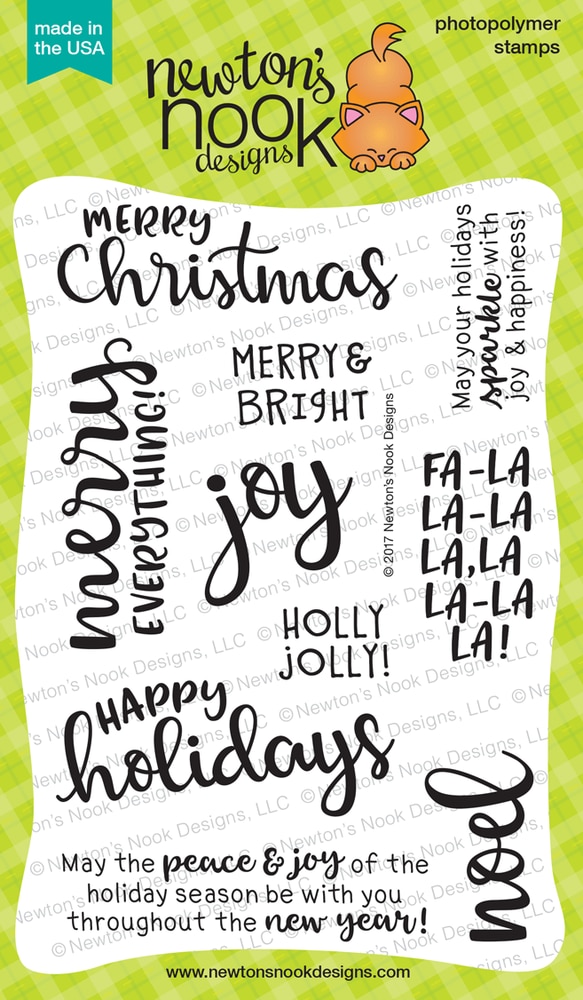 made in
the USA
newton's
nook
designs
photopolymer
stamps
MERRY
Christmas
May your holidays
sparkle with
joy & happiness!
merry
EVERYTHING!
MERRY &
BRIGHT
joy
© 2017 Newton's Nook Designs
FA-LA
LA-LA
LA,LA
LA-LA
LA!
HOLLY
JOLLY!
HAPPY
holidays
noel
May the peace & joy of the
holiday season be with you
throughout the new year!
www.newtonsnookdesigns.com
© Newton's Nook Designs, LLC